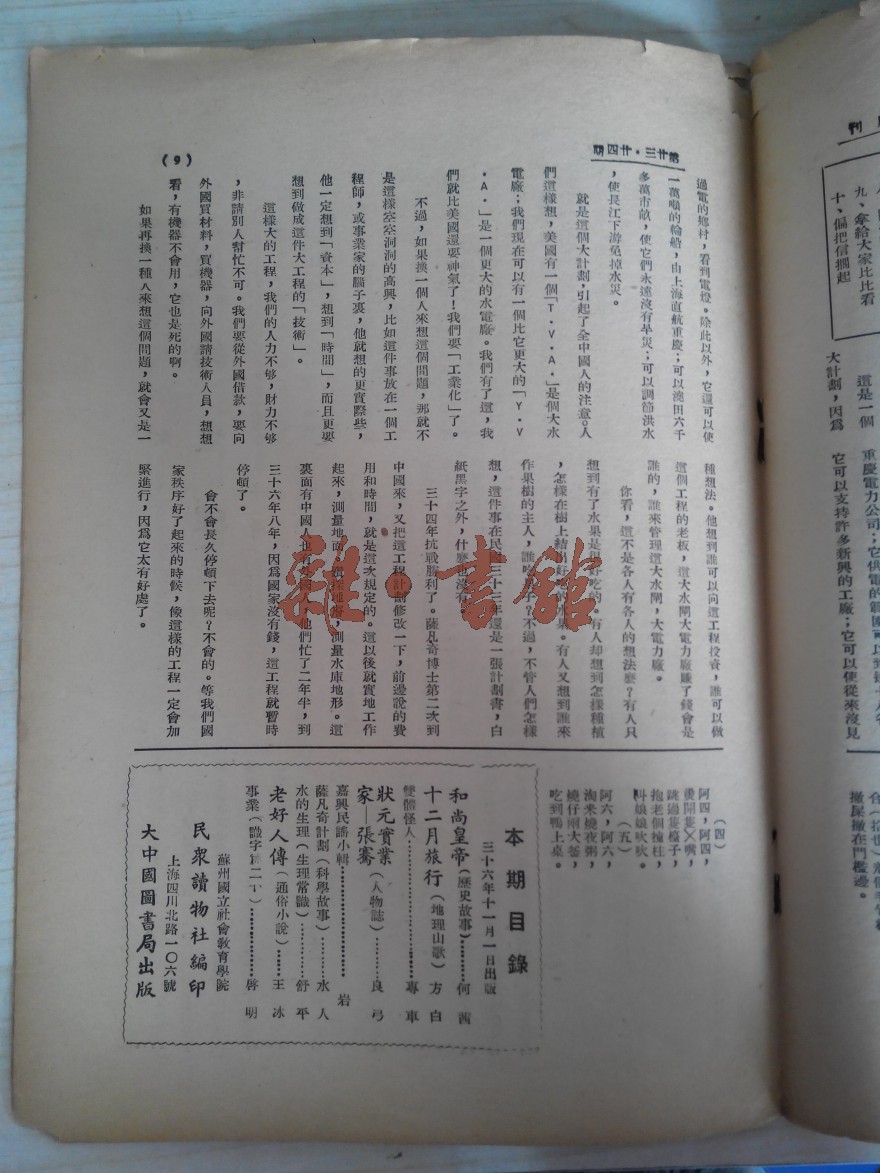 第廿三·廿四期
(9)
過電的鄉村，看到電燈。除此以外，它還可以使
一萬噸的輪船，由上海直航重慶；可以澆田六千
多萬市畝，使它們永遠沒有旱災；可以調節洪水
，使長江下游免掉水災。
就是這個大計劃，引起了全中國人的注意。人
們這樣想，美國有一個「T·V·A·」是個大水
電廠；我們現在可以有一個比它更大的「Y·V
·A·」是一個更大的水電廠。我們有了這，我
們就比美國還要神氣了！我們要「工業化」了。
不過，如果換一個人來想這個問題，那就不
是這樣空空洞洞的高興，比如這件事放在一個工
程師，或事業家的腦子裏，他就想的更實際些，
他一定想到「資本」，想到「時間」，而且更要
想到做成這件大工程的「技術」。
這樣大的工程，我們的人力不够，財力不够
，非請別人幫忙不可。我們要從外國借款，要向
外國買材料，買機器，向外國請技術人員，想想
看，有機器不會用，它也是死的啊。
如果再換一種人來想這個問題，就會又是一
種想法。他想到誰可以向這工程投資，誰可以做
這個工程的老板，這大水閘大電力廠賺了錢會是
誰的，誰來管理這大水閘，大電力廠。
你看，這不是各人有各人的想法麼？有人只
想到有了水果是很好吃的，有人却想到怎樣種植
，怎樣在樹上結出好的水果。有人又想到誰來
作果樹的主人，誰吃果子？不過，不管人們怎樣
想，這件事在民國三十三年還是一張計劃書，白
紙黑字之外，什麼也沒有。
三十四年抗戰勝利了。薩凡奇博士第二次到
中國來，又把這工程計劃修改一下，前邊說的費
用和時間，就是這次規定的。這以後就實地工作
起來，測量地面，鑽探地層，測量水庫地形。這
裏面有中國人也有美國人，他們忙了二年半，到
三十六年八年，因爲國家沒有錢，這工程就暫時
停頓了。
會不會長久停頓下去呢？不會的。等我們國
家秩序好了起來的時候，像這樣的工程一定會加
緊進行，因爲它太有好處了。
(四)
阿四，阿四，
跳過隻檯子，
抱老個棟柱，
叫娘娘吹吹。
(五)
阿六，阿六，
淘米燒夜粥，
燒仔兩大簽，
吃到鴨上桌。
本期目錄
三十六年十一月一日出版
和尚皇帝（歷史故事）………何茜
十二月旅行（地理山歌）方白
雙體怪人………專車
狀元實業
家—張謇（人物誌）………良弓
嘉興民謠小輯………岩
薩凡奇計劃（科學故事）………水人
水的生理（生理常識）………舒平
老好人傳（通俗小說）………王冰
事業（識字篇二十）………啓明
蘇州國立社會教育學院
民衆讀物社編印
上海四川北路一〇六號
大中國圖書局出版
刊
九、拿給大家比比看
十、偏把信擱起
這是一個
大計劃，因爲
重慶電力公司；它供電的範圍
它可以支持許多新興的工廠；它可以使從來沒見
撒屎撒在門檻邊。
雜·書館